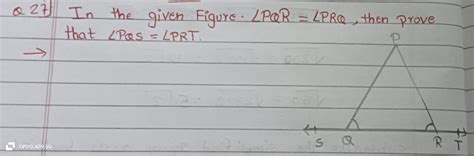 Q.27) In the given Figure. ∠PQR = ∠PRQ, then prove
that ∠PQS = ∠PRT.
→
P
S Q R T